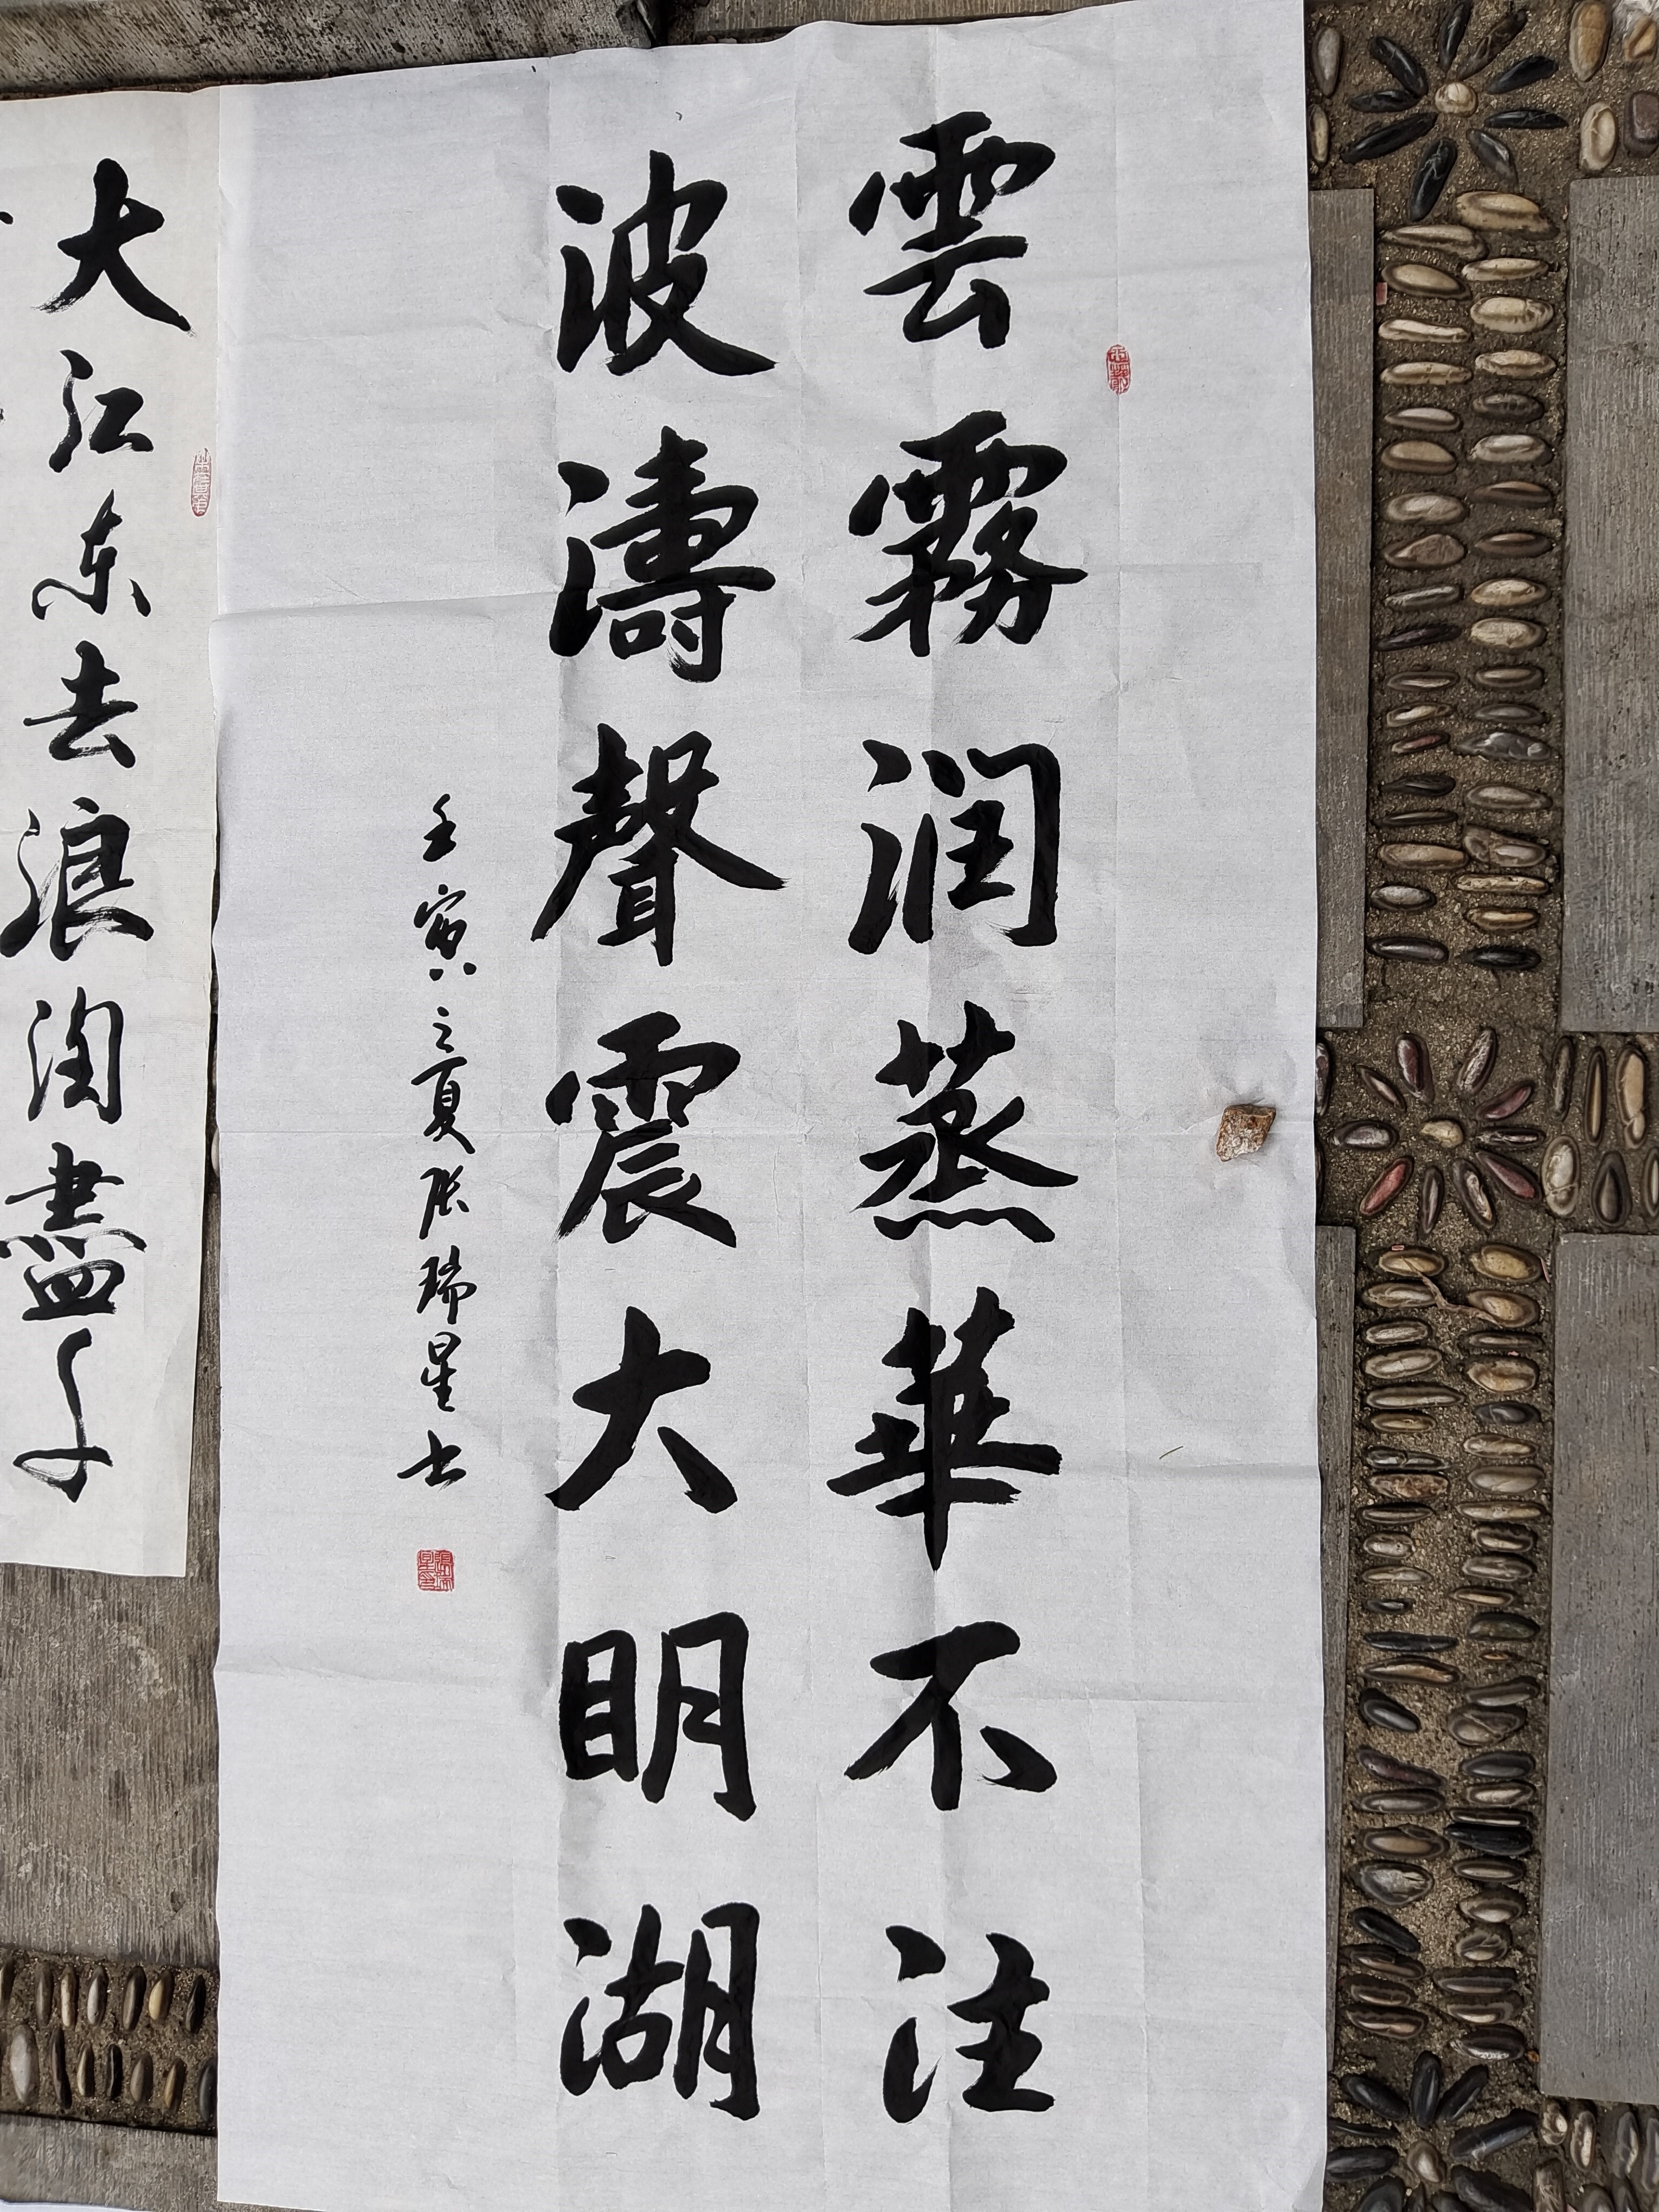 雲霧润蒸華不注
波濤聲震大明湖
壬寅之夏张瑞星书
大江东去浪淘盡千